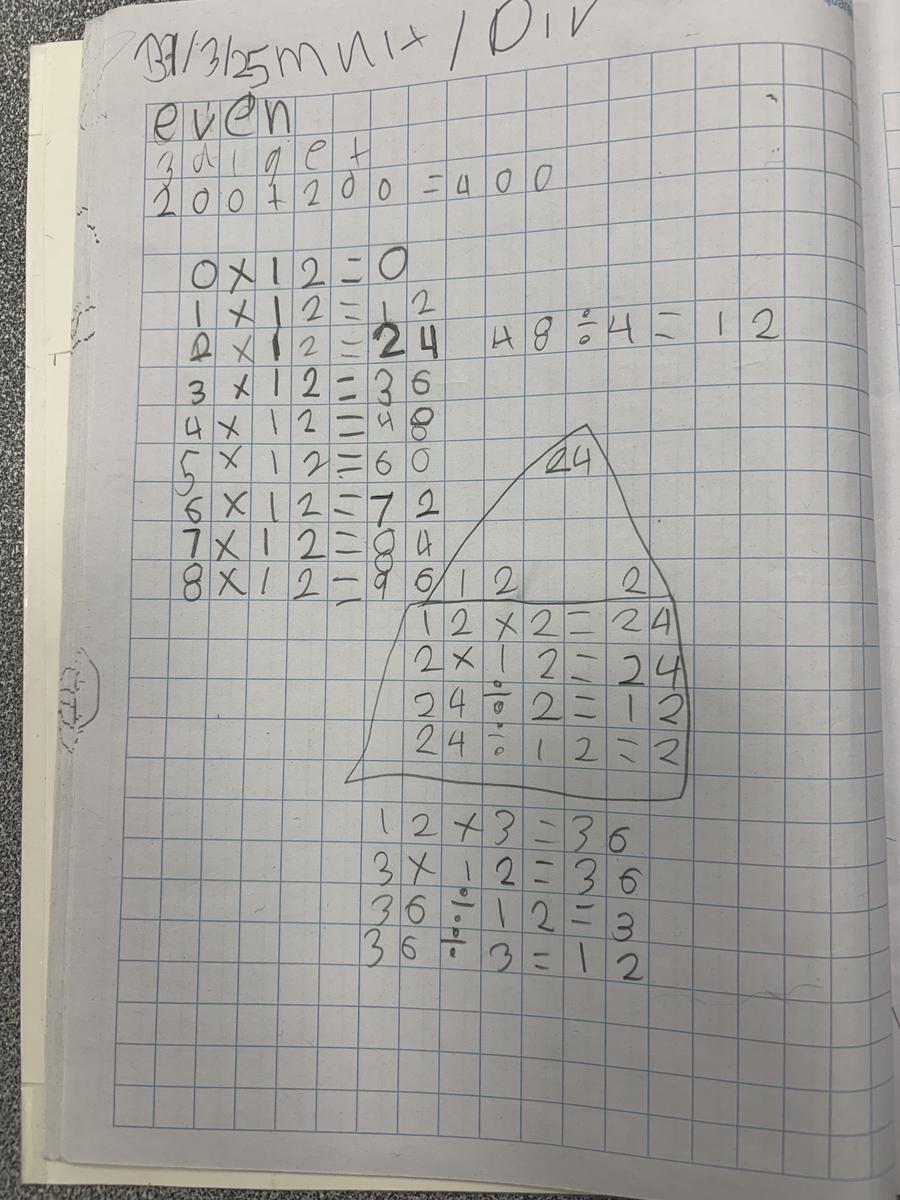 31/3/25 mult / Div
even
3 diget
200+200=400
0×12=0
1×12=12
2×12=24
48÷4=12
3×12=36
4×12=48
5×12=60
6×12=72
7×12=84
8×12=96
24
12 2
12×2=24
2×12=24
24÷2=12
24÷12=2
12×3=36
3×12=36
36÷12=3
36÷3=12